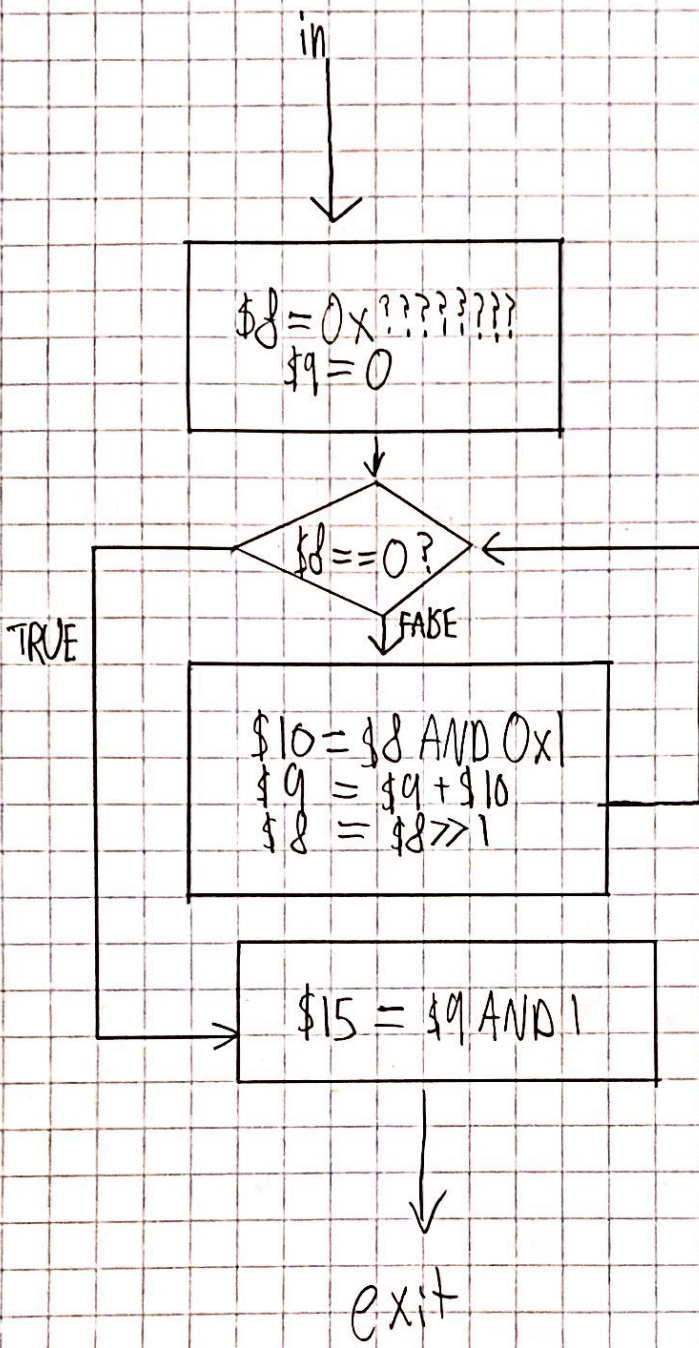 in
$8=0x????????
$9=0
$8==0?
TRUE
FALSE
$10=$8 AND 0x1
$9 = $9+$10
$8 = $8>>1
$15 = $9 AND 1
exit